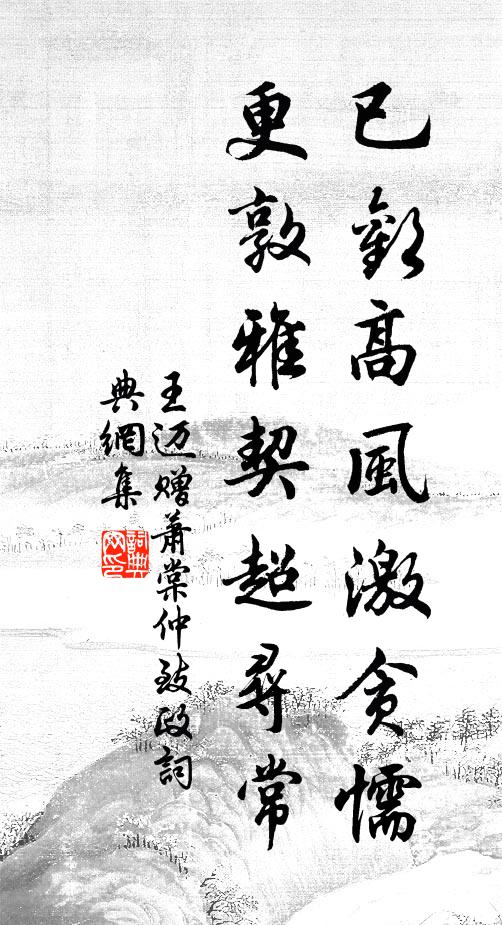 已觀高風激貪懦
更敦雅契超尋常
王迈赠蕭棠仲致政詞
典網集
詞典
网印